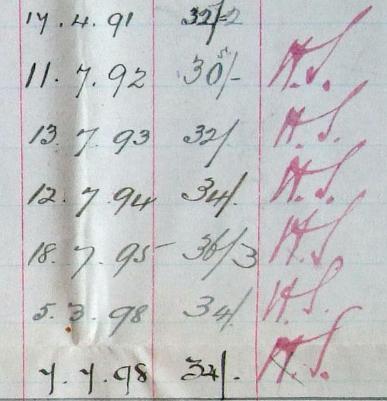 17.4.91 32/-2
11.7.92 30/- H.S.
13.7.93 32/. H.S.
12.7.94 34/. H.S.
18.7.95 36/3 H.S.
5.3.98 34/. H.S.
7.7.98 34/. H.S.